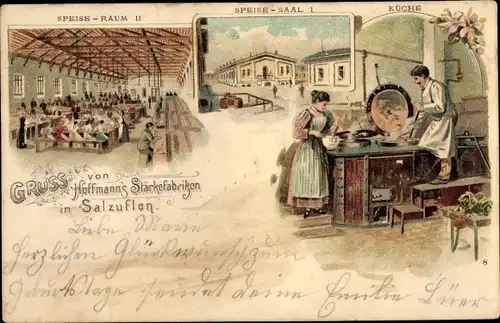 SPEISE-RAUM II
SPEISE-SAAL I
KÜCHE
GRUSS von
Hoffmann's Stärkefabriken
in Salzuflen.
Liebe Marie
Herzlichen Glückwunsch zum
Geburtstage sendet deine Emilie Lüer
8